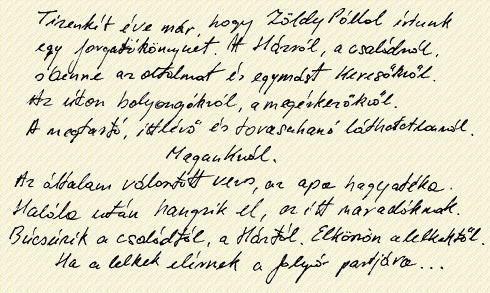 Tizenkét éve már, hogy Zöldy Pállal írtunk
egy forgatókönyvet. A Házról, a családról,
s benne az oltalmat és egymást keresőkről.
Az úton bolyongókról, a megérkezőkről.
A megtartó, ittlévő és tovasuhanó láthatatlanról.
Magunkról.
Az általam választott vers, az apa hagyatéka.
Halála után hangzik el, az itt maradóknak.
Búcsúzik a családtól, a Háztól. Elköszön a lelkektől.
Ha a lelkek elérnek a folyó partjára...